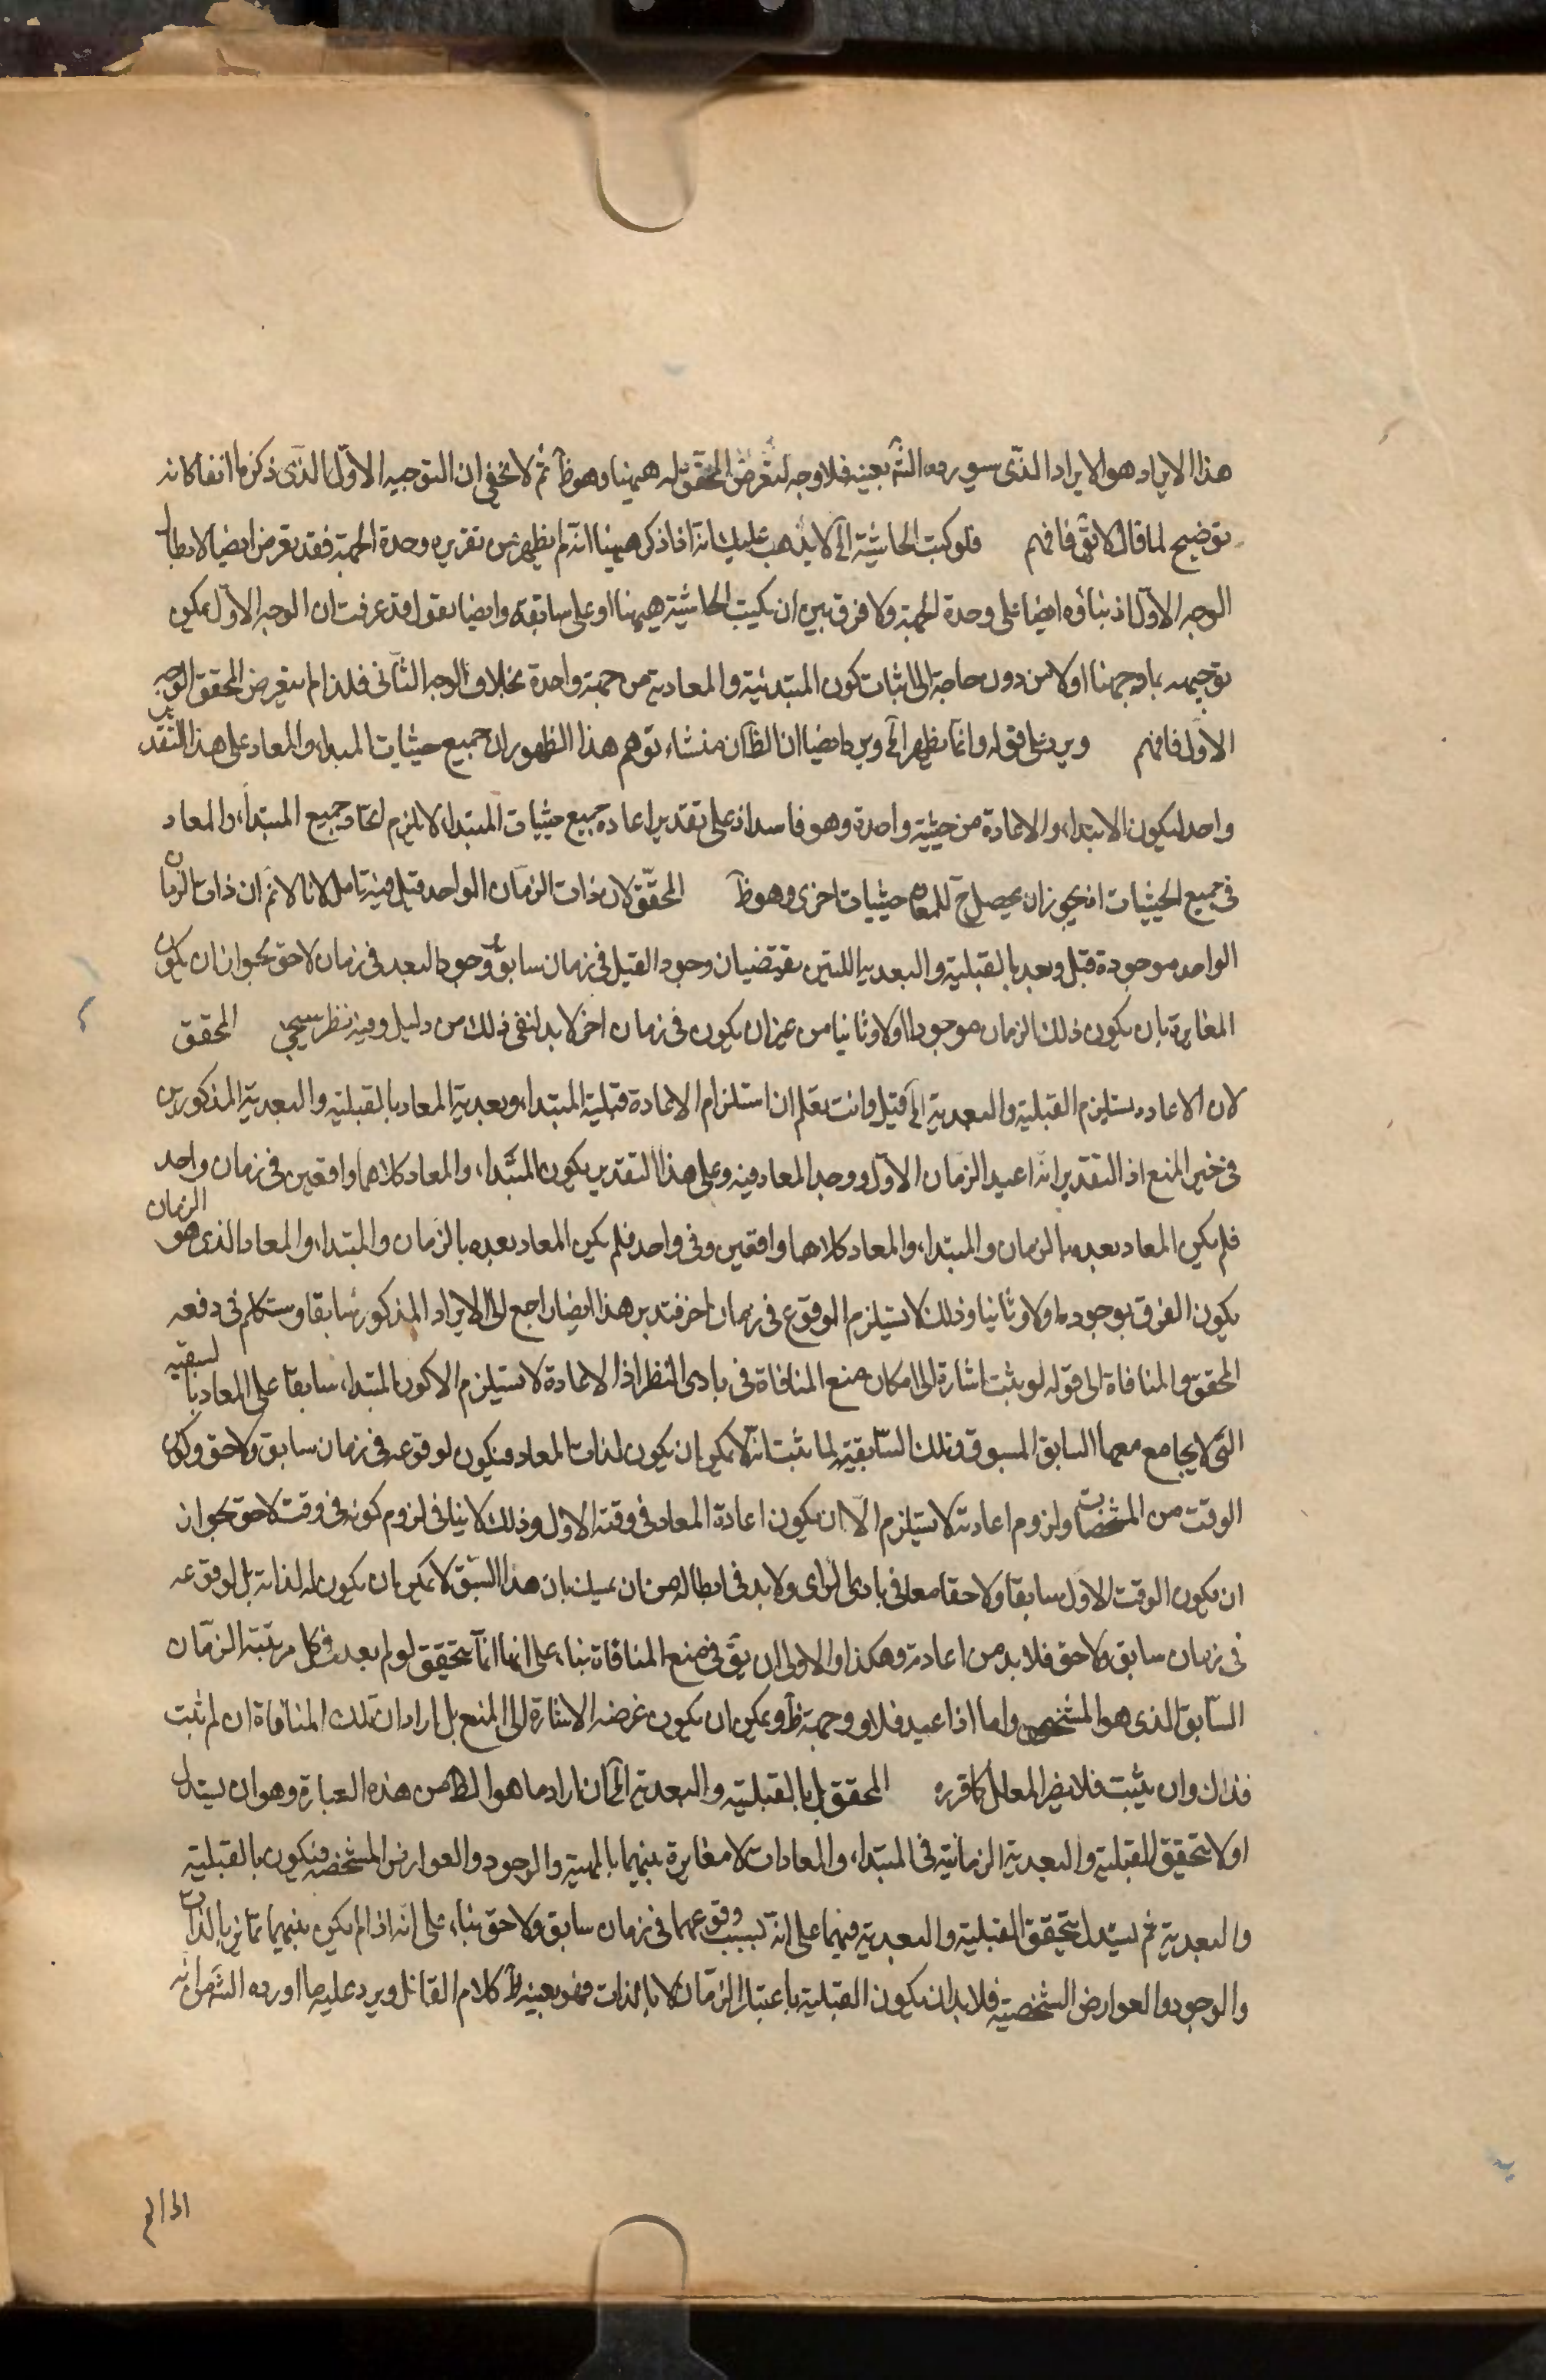 هذا الايراد هو الايراد الذى سيورده الش بعينه فلا وجه لتعرض المحقق له ههنا وهو ظ ثم لا يخفى ان التوجيه الاول الذى ذكرنا انفا كانه
توضيح لما قال فافهم فلو كتب الحاشية الخ لا يذهب عليك انه اذا ذكر ههنا انه لم يظهر من تقريره وحدة الجهة فقد تعرض ايضا لابطال
الوجه الاول اذ بناؤه ايضا على وحدة الجهة ولا فرق بين ان يكتب الحاشية ههنا او على سابقه وايضا نقول قد عرفت ان الوجه الاول يمكن
توجيهه بما وجهنا اولا من دون حاجة الى اثبات كون المبتدئية والمعادية من جهة واحدة بخلاف الوجه الثانى فلذا لم يتعرض المحقق الوجه
الاول فافهم ويرد على قوله وانما يظهر الخ ويرد ايضا ان الظ ان منشاء توهم هذا الظهور ان جميع حيثيات المبداء والمعاد على هذا التقدير
واحد فيكون الابتداء والاعادة من حيثية واحدة وهو فاسد اذ على تقدير اعادة جميع حيثيات المبتداء لا يلزم اتحاد جميع المبتداء والمعاد
فى جميع الحيثيات اذ يجوز ان يحصل ح للمعاد حيثيات اخرى وهو ظ المحقق لان ذات الزمان الواحد قيل فيه تامل لانا لا نم ان ذات الزمان
الواحد موجودة قبل وبعد بالقبلية والبعدية اللتين يقتضيان وجود القبل فى زمان سابق ووجود البعد فى زمان لاحق بجواز ان يكون
المغايرة بان يكون ذلك الزمان موجودا اولا وثانيا من غير ان يكون فى زمان اخر لا بد لنفى ذلك من دليل وفيه نظر سيجئ المحقق
لان الاعادة يستلزم القبلية والبعدية الخ قيل وانت تعلم ان استلزام الاعادة قبلية المبتداء وبعدية المعاد بالقبلية والبعدية المذكورين
فى خير المنع اذ التقدير انه اعيد الزمان الاول ووجد المعاد فيه وعلى هذا التقدير يكون المبتداء والمعاد كلاهما واقعين فى زمان واحد
فلم يكن المعاد بعده بالزمان والمبتداء والمعاد كلاهما واقعين وفى واحد فلم يكن المعاد بعده بالزمان والمبتداء والمعاد الذى هو الزمان
يكون الفرق بوجوده اولا وثانيا وذلك لا يستلزم الوقوع فى زمان اخر فتدبر هذا ايضا راجع الى الايراد المذكور سابقا وستكلم فى دفعه
المحقق والمنافاة الى قوله لو يثبت اشارة الى امكان منع المنافاة فى بادى النظر اذ الاعادة لا يستلزم الا كون المبتداء سابقا على المعاد بالسبقية
التى لا يجامع معها السابق المسبوق وتلك السابقية لما ثبت انه لا يمكن ان يكون لذات المعاد فيكون لوقوعه فى زمان سابق ولاحق وكون
الوقت من المشخصات ولزوم اعادته لا يستلزم الا ان يكون اعادة المعاد فى وقته الاول وذلك لا ينافى لزوم كونه فى وقت لاحق بجواز
ان يكون الوقت الاول سابقا ولاحقا معا فى بادى الراى ولا بد فى ابطاله من ان بان هذا السبق لا يمكن ان يكون له لذاته بل لوقوعه
فى زمان سابق ولاحق فلا بد من اعادته وهكذا والاولى ان يق فى منع المنافاة بناء على انها انما يتحقق لو لم يعد فى كل مرتبة الزمان
السابق الذى هو المشخص واما اذا اعيد فلا ووجهه ظ ويمكن ان يكون غرضه الاشارة الى المنع بل اراد ان تلك المنافاة ان لم يثبت
فذاك وان يثبت فلا يضر المعلل كما قرره المحقق بل بالقبلية والبعدية الخ ان اراد ما هو الظ من هذه العبارة وهو ان يستدل
اولا بتحقيق القبلية والبعدية الزمانية فى المبتداء والمعاد انه لا مغايرة بينهما بالمهية والوجود والعوارض المشخصة فيكون بالقبلية
والبعدية ثم يستدل بتحقق القبلية والبعدية فيهما على انه بسبب وقوعهما فى زمان سابق ولاحق بناء على انه اذا لم يكن بينهما تمايز بالذات
والوجود والعوارض الشخصية فلا بد ان يكون القبلية باعتبار الزمان لا بالذات فهو بعينه كلام القائل ويرد عليه ما اورده الش من انه